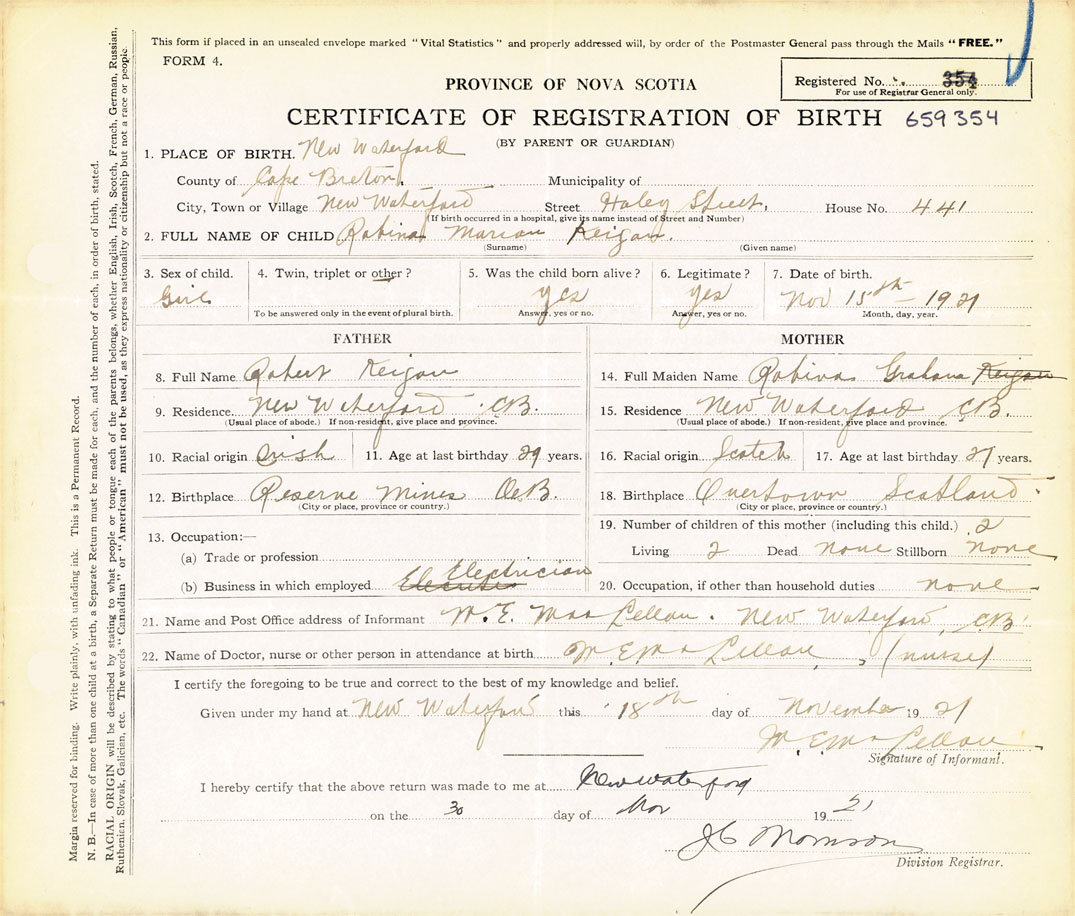 This form if placed in an unsealed envelope marked "Vital Statistics" and properly addressed will, by order of the Postmaster General pass through the Mails "FREE."
FORM 4.
Registered No. 354
For use of Registrar General only.
PROVINCE OF NOVA SCOTIA
CERTIFICATE OF REGISTRATION OF BIRTH 659354
(BY PARENT OR GUARDIAN)
1. PLACE OF BIRTH. New Waterford
County of Cape Breton, Municipality of
City, Town or Village New Waterford Street Haley Street, House No. 441
(If birth occurred in a hospital, give its name instead of Street and Number)
2. FULL NAME OF CHILD Robina Marion Keigan.
(Surname) (Given name)
3. Sex of child. 4. Twin, triplet or other? 5. Was the child born alive? 6. Legitimate? 7. Date of birth.
Girl yes yes Nov 15th - 1921
To be answered only in the event of plural birth. Answer, yes or no. Answer, yes or no. Month, day, year.
FATHER MOTHER
8. Full Name Robert Keigan 14. Full Maiden Name Robina Graham Keigan
9. Residence. New Waterford CB. 15. Residence New Waterford CB.
(Usual place of abode.) If non-resident, give place and province. (Usual place of abode.) If non-resident, give place and province.
10. Racial origin Irish 11. Age at last birthday 29 years. 16. Racial origin Scotch 17. Age at last birthday 27 years.
12. Birthplace Reserve Mines 18. Birthplace Overtown Scotland
(City or place, province or country.) (City or place, province or country.)
13. Occupation:— 19. Number of children of this mother (including this child.) 2
(a) Trade or profession Living 2 Dead none Stillborn none
(b) Business in which employed Electrician 20. Occupation, if other than household duties none
21. Name and Post Office address of Informant M. E. MacLellan. New Waterford, CB
22. Name of Doctor, nurse or other person in attendance at birth M E MacLellan, (nurse)
I certify the foregoing to be true and correct to the best of my knowledge and belief.
Given under my hand at New Waterford this 18th day of November 1921
M. E. MacLellan
Signature of Informant.
I hereby certify that the above return was made to me at New Waterford
on the 30 day of Nov 1921
J C Morrison
Division Registrar.
Margin reserved for binding. Write plainly, with unfading ink. This is a Permanent Record.
N. B.—In case of more than one child at a birth, a Separate Return must be made for each, and the number of each, in order of birth, stated.
RACIAL ORIGIN will be described by stating to what people or tongue each of the parents belongs, whether English, Irish, Scotch, French, German, Russian,
Ruthenian, Slovak, Galician, etc. The words "Canadian" or "American" must not be used, as they express nationality or citizenship but not a race or people.